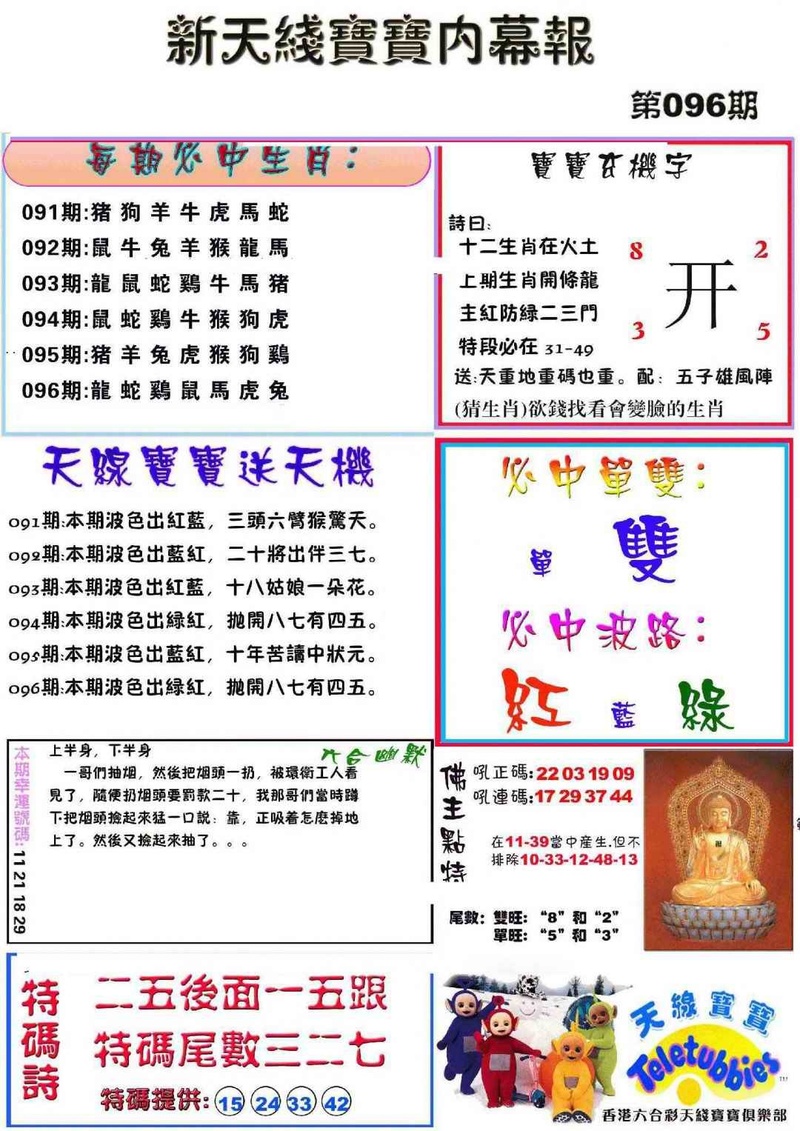 新天綫寶寶内幕報
第096期
每期必中生肖：
091期:猪狗羊牛虎馬蛇
092期:鼠牛兔羊猴龍馬
093期:龍鼠蛇鷄牛馬猪
094期:鼠蛇鷄牛猴狗虎
095期:猪羊兔虎猴狗鷄
096期:龍蛇鷄鼠馬虎兔
寶寶玄機字
詩曰:
十二生肖在火土
上期生肖開條龍
主紅防緑二三門
特段必在 31-49
8 2
开
3 5
送:天重地重碼也重。配：五子雄風陣
(猜生肖)欲錢找看會變臉的生肖
天線寶寶送天機
091期:本期波色出紅藍，三頭六臂猴驚天。
092期:本期波色出藍紅，二十將出伴三七。
093期:本期波色出紅藍，十八姑娘一朵花。
094期:本期波色出緑紅，拋開八七有四五。
095期:本期波色出藍紅，十年苦讀中狀元。
096期:本期波色出緑紅，拋開八七有四五。
必中單雙：
單 雙
必中波路：
紅 藍 綠
本期幸運號碼:11 21 18 29
六合幽默
上半身，下半身
一哥们抽烟，然後把烟頭一扔，被環衛工人看
見了，隨便扔烟頭要罰款二十，我那哥们當時蹲
下把烟頭撿起來猛一口説：靠，正吸着怎麽掉地
上了。然後又撿起來抽了。。。
佛主點特
吼正碼:22 03 19 09
吼連碼:17 29 37 44
在11-39當中産生.但不
排除10-33-12-48-13
尾數：雙旺：“8”和“2”
單旺：“5”和“3”
特碼詩
二五後面一五跟
特碼尾數三二七
特碼提供: 15 24 33 42
天線寶寶
Teletubbies
TM
香港六合彩天綫寶寶俱樂部